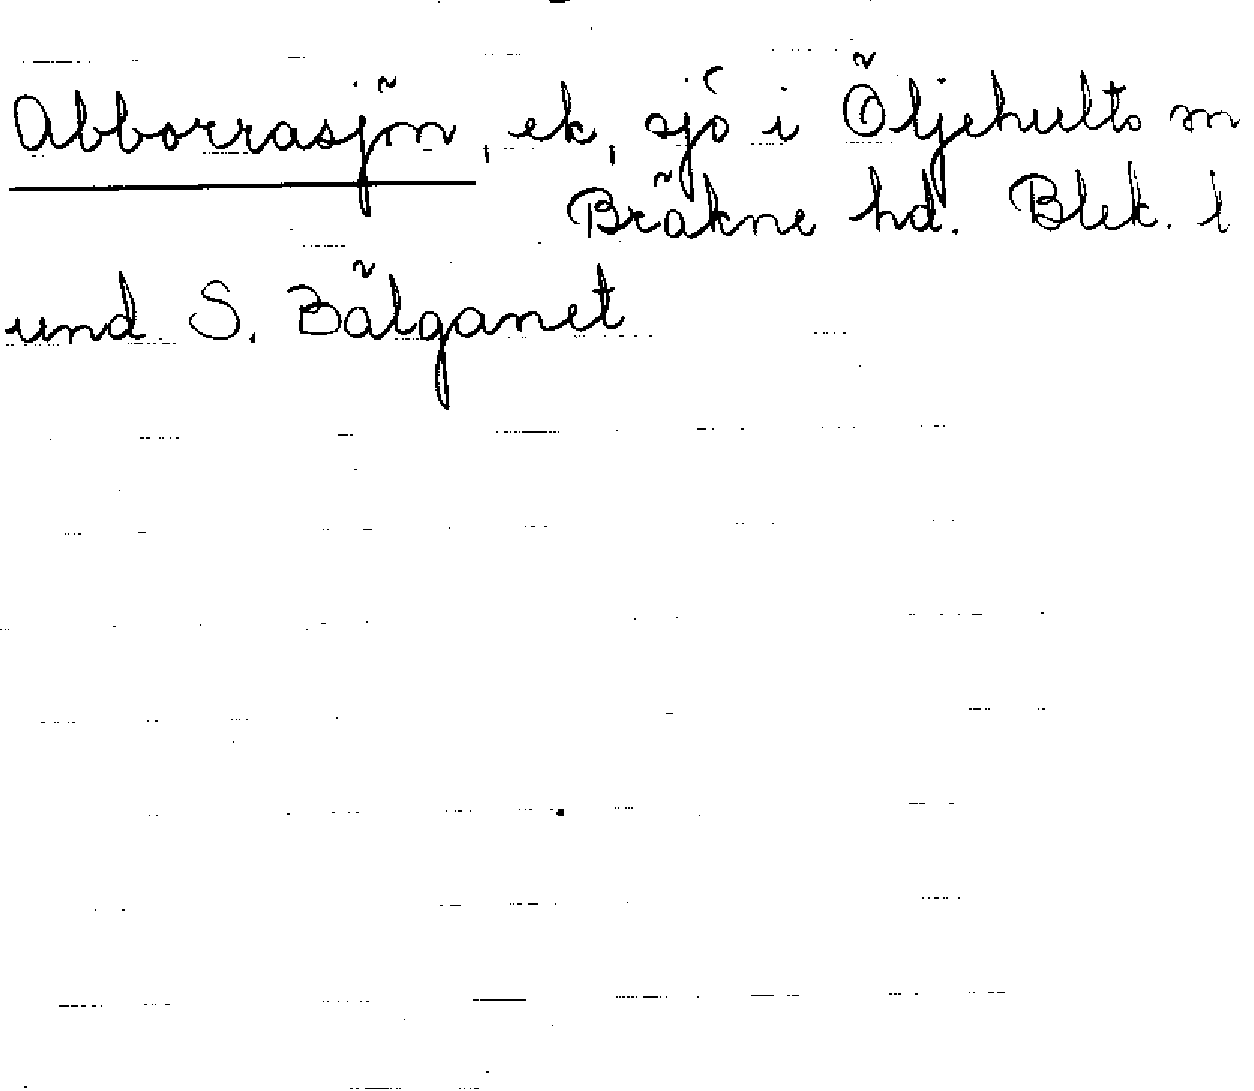 Abborrasjön, ek, sjö i Öljehults m
Bräkne hd. Blek. l
und. S. Bälganet